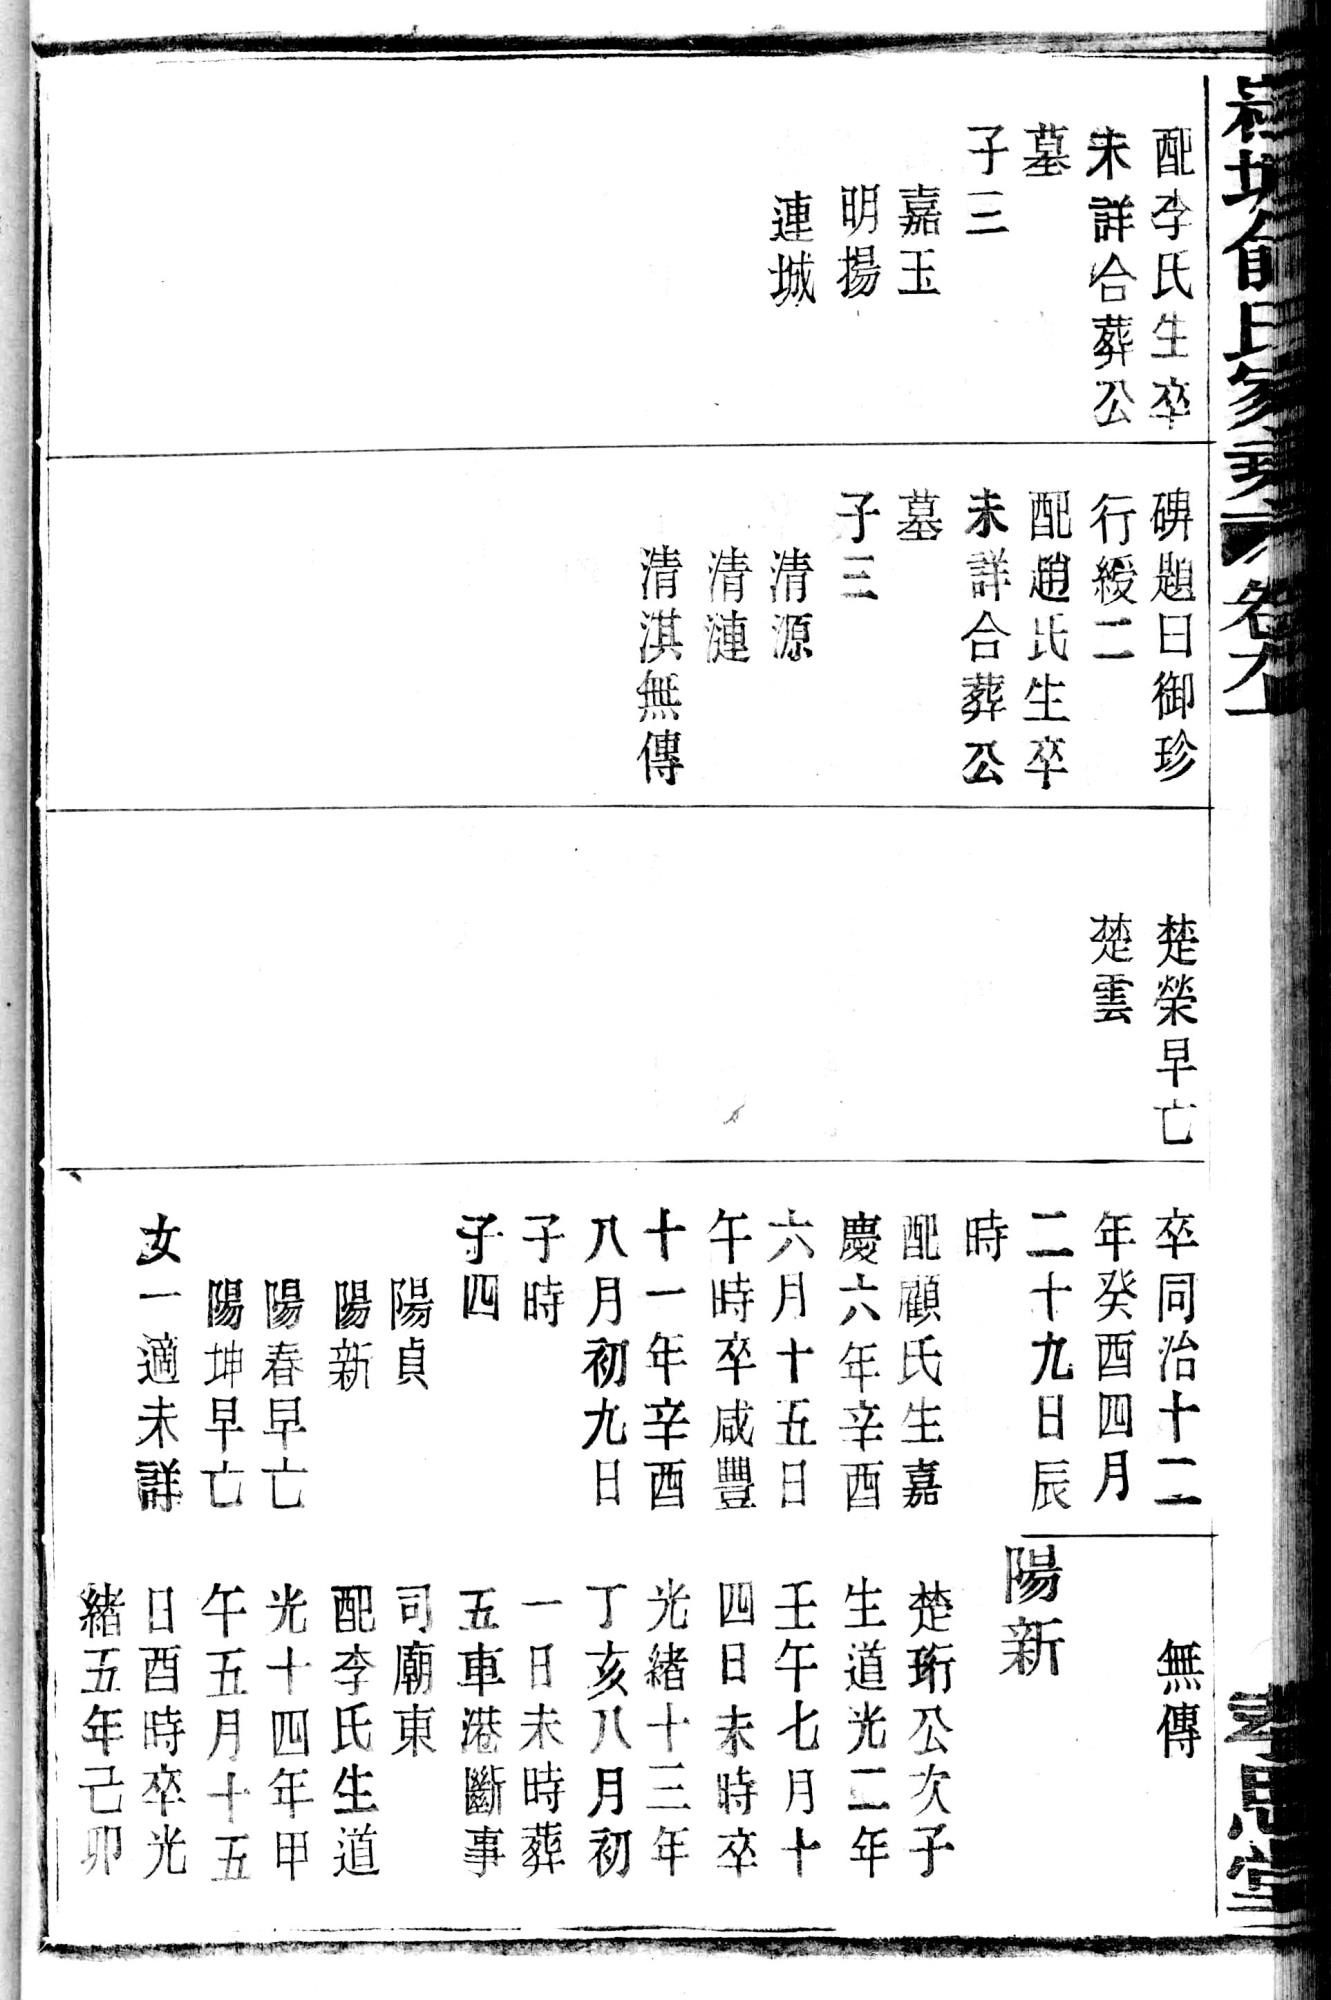 俞氏家乘
卷六上
孝思堂
配李氏生卒
未詳合葬公
墓
子三
嘉玉
明揚
連城
碑題曰御珍
行綬二
配趙氏生卒
未詳合葬公
墓
子三
清源
清漣
清淇無傳
楚榮早亡
楚雲
卒同治十二
年癸酉四月
二十九日辰
時
配顧氏生嘉
慶六年辛酉
六月十五日
午時卒咸豐
十一年辛酉
八月初九日
子時
子四
陽貞
陽新
陽春早亡
陽坤早亡
女一適未詳
無傳
陽新
楚珩公次子
生道光二年
壬午七月十
四日未時卒
光緒十三年
丁亥八月初
一日未時葬
五車港斷事
司廟東
配李氏生道
光十四年甲
午五月十五
日酉時卒光
緒五年己卯